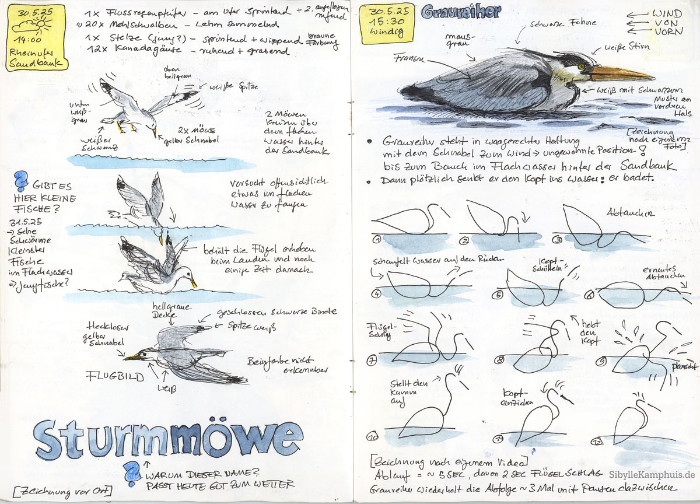 30.5.25
14:00
Rheinufer
Sandbank
1x Flussregenpfeifer - am Ufer sprintend
20x Mehlschwalben - Lehm sammelnd
1x Stelze (juv?) - sprintend + wippend
braune
Färbung
12x Kanadagänse - ruhend + grasend
oben
hellgrau
weiße Spitze
unten
weiß-
grau
weißer
Schwanz
2x Möwe
gelber Schnabel
2 Möwen
kreisen über
dem flachen
Wasser hinter
der Sandbank
? GIBT ES
HIER KLEINE
FISCHE?
31.5.25
→ Sehe
Schwärme
kleinster
Fische
im Flachwasser
→ Jungfische?
versucht offensichtlich
etwas im flachen
Wasser zu fangen
behält die Flügel erhoben
beim Landen und noch
einige Zeit danach
hellgraue
Decke
geschlossen schwarze Bande
Spitze weiß
Fleckloser
gelber
Schnabel
FLUGBILD
weiß
Beinfarbe nicht
erkennbar
Sturmmöwe
? WARUM DIESER NAME?
PASST HEUTE GUT ZUM WETTER
[Zeichnung vor Ort]
30.5.25
15:30
windig
Graureiher
schwarze Fahne
WIND
VON
VORN
maus-
grau
Fransen
weiße Stirn
weiß mit schwarzem
Muster am
vorderen
Hals
[Zeichnung
nach eigenem
Foto]
• Graureiher steht in waagerechter Haltung
mit dem Schnabel zum Wind → ungewohnte Position!
bis zum Bauch im Flachwasser hinter der Sandbank
• Dann plötzlich senkt er den Kopf ins Wasser: er badet.
Abtauchen
1
2
3
schaufelt Wasser auf den Rücken
Kopf-
schütteln
erneutes
Abtauchen
4
5
6
Flügel-
schlag
hebt
den
Kopf
planscht
7
8
9
Stellt den
Kamm
auf
Kopf
einziehen
10
11
12
[Zeichnung nach eigenem Video]
Ablauf = ~ 5 SEC, davon 2 SEC FLÜGELSCHLAG
Graureiher wiederholt die Abfolge ~ 3 Mal mit Pausen dazwischen
SibylleKamphuis.de